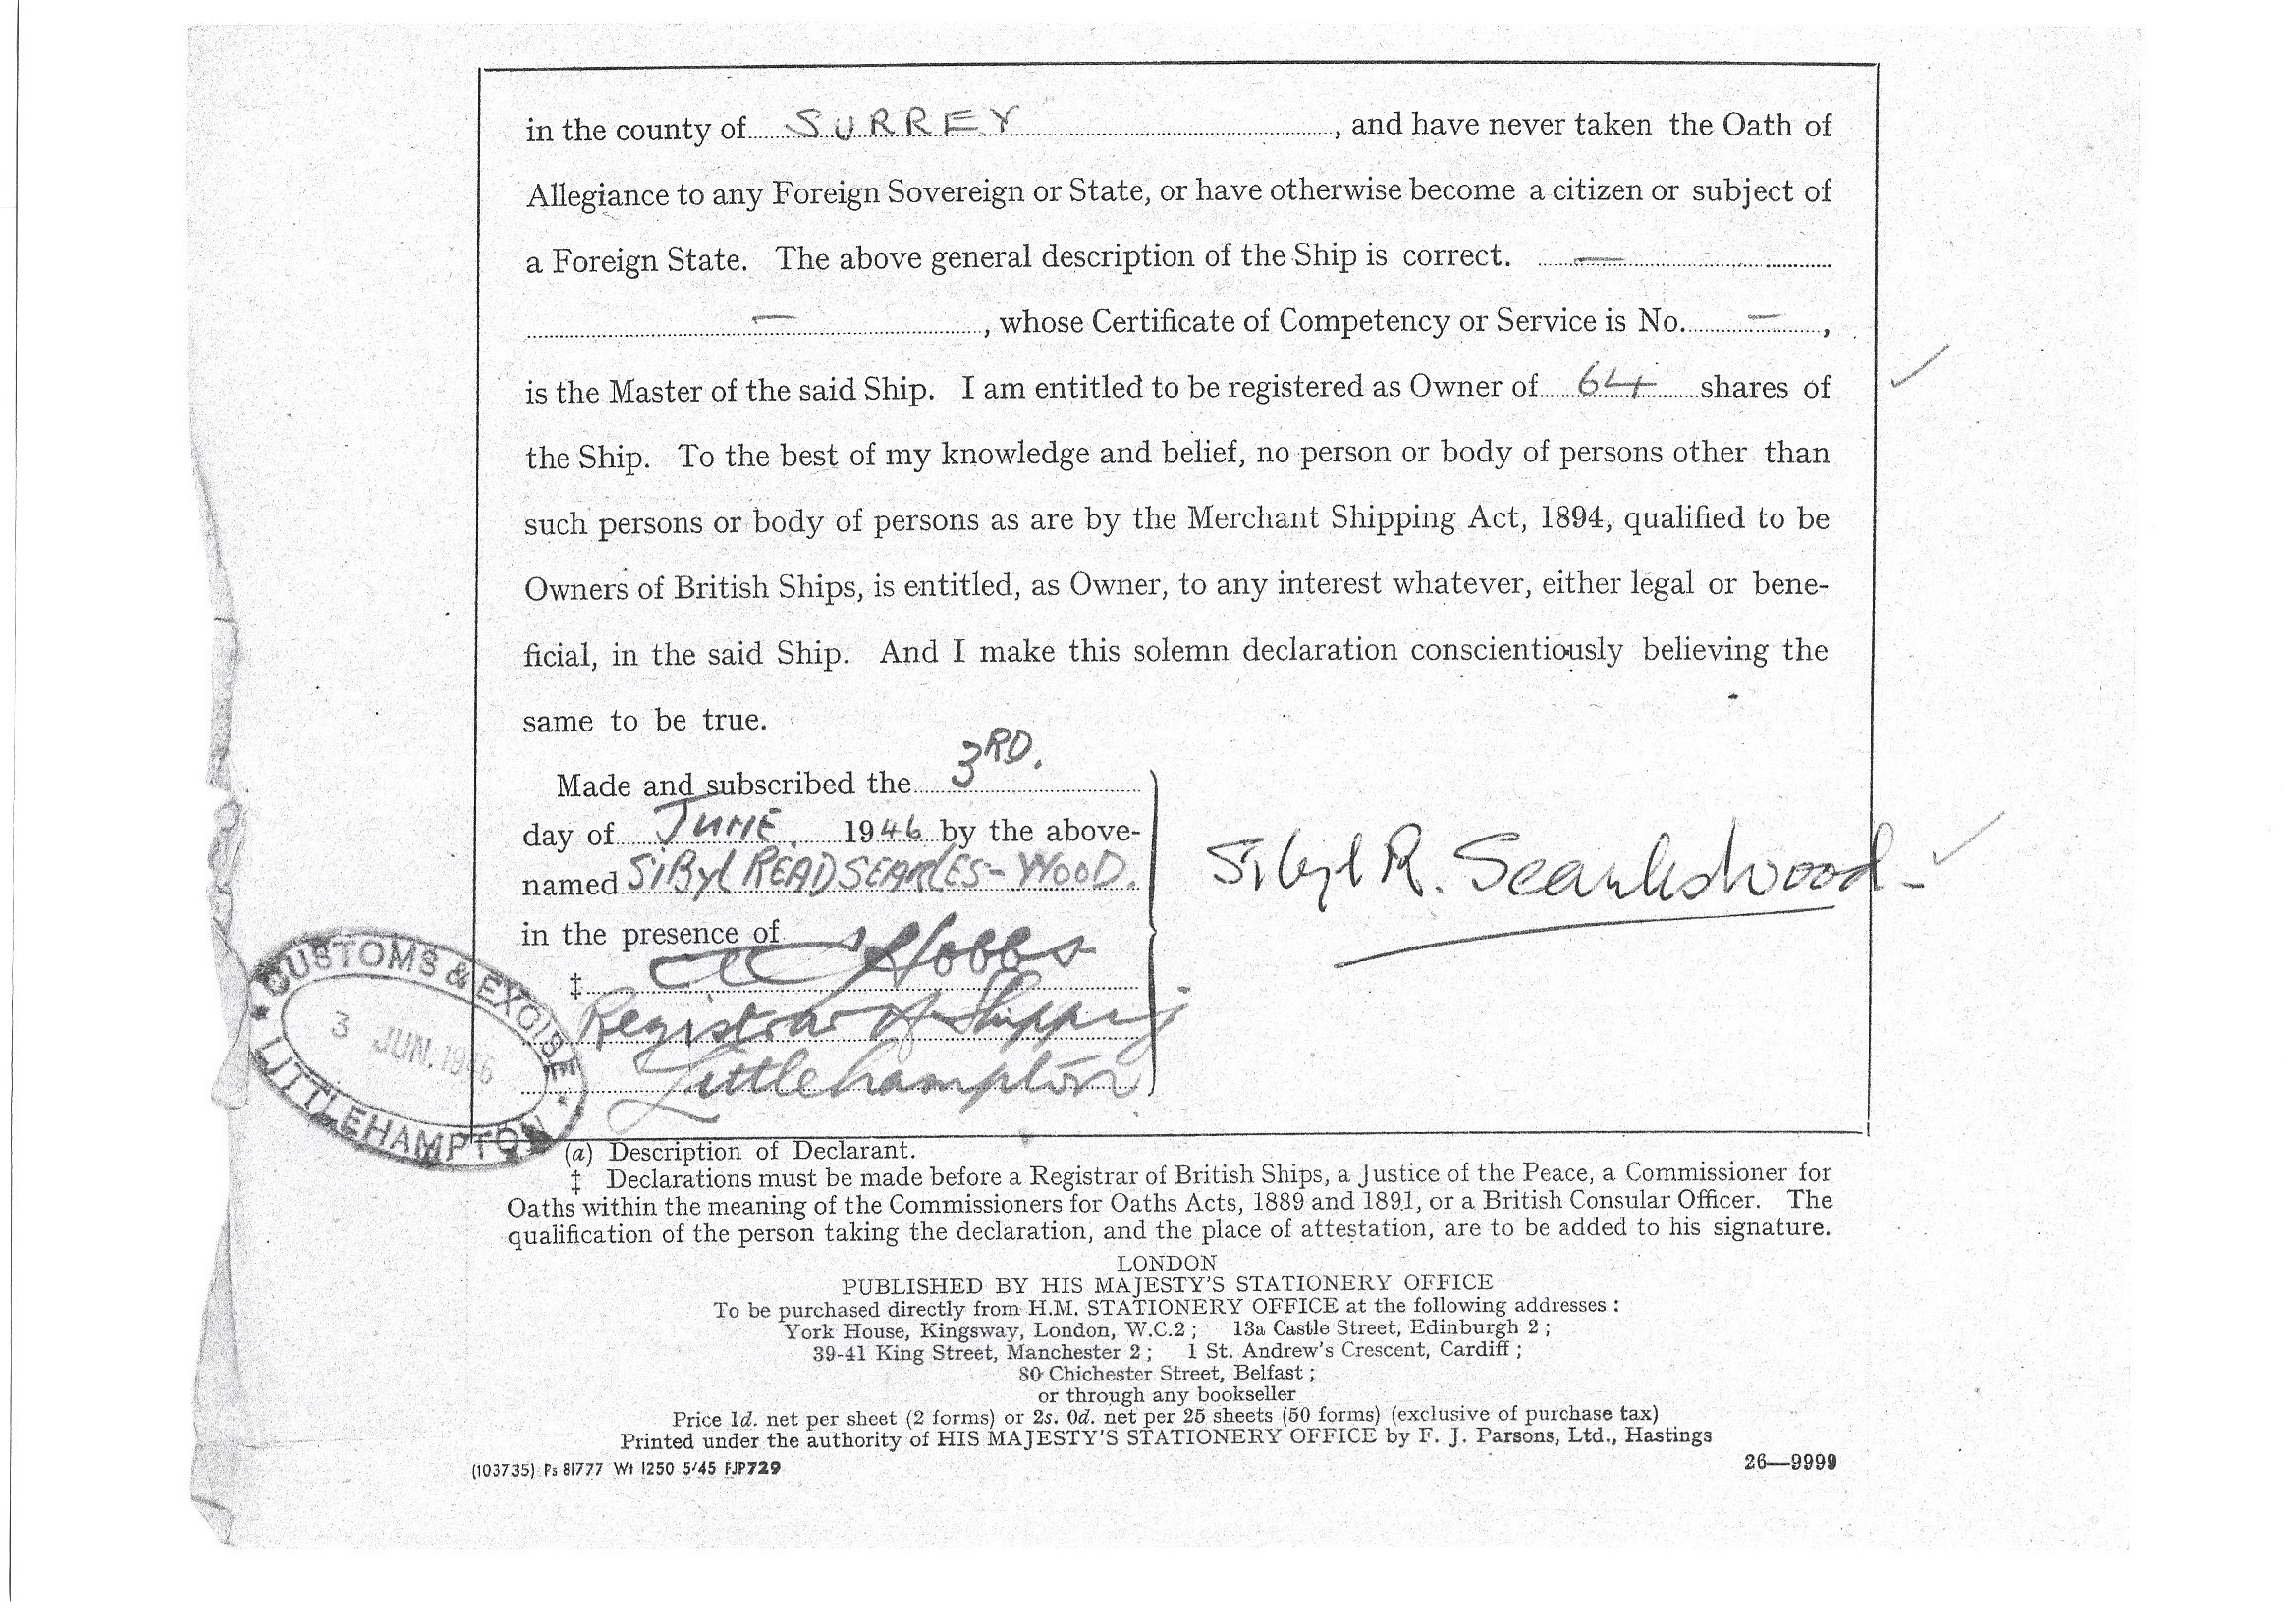 in the county of SURREY, and have never taken the Oath of
Allegiance to any Foreign Sovereign or State, or have otherwise become a citizen or subject of
a Foreign State. The above general description of the Ship is correct. —
—, whose Certificate of Competency or Service is No. —,
is the Master of the said Ship. I am entitled to be registered as Owner of 64 shares of
the Ship. To the best of my knowledge and belief, no person or body of persons other than
such persons or body of persons as are by the Merchant Shipping Act, 1894, qualified to be
Owners of British Ships, is entitled, as Owner, to any interest whatever, either legal or bene-
ficial, in the said Ship. And I make this solemn declaration conscientiously believing the
same to be true.
Made and subscribed the 3RD.
day of JUNE. 1946 by the above-
named SiByl READ SEARLES-WOOD.
Sibyl R. Searleswood
in the presence of
‡ Hobbs
Registrar of Shipping
Littlehampton
CUSTOMS & EXCISE
3 JUN. 1946
LITTLEHAMPTON
(a) Description of Declarant.
‡ Declarations must be made before a Registrar of British Ships, a Justice of the Peace, a Commissioner for
Oaths within the meaning of the Commissioners for Oaths Acts, 1889 and 1891, or a British Consular Officer. The
qualification of the person taking the declaration, and the place of attestation, are to be added to his signature.
LONDON
PUBLISHED BY HIS MAJESTY'S STATIONERY OFFICE
To be purchased directly from H.M. STATIONERY OFFICE at the following addresses :
York House, Kingsway, London, W.C.2 ; 13a Castle Street, Edinburgh 2 ;
39-41 King Street, Manchester 2 ; 1 St. Andrew's Crescent, Cardiff ;
80 Chichester Street, Belfast ;
or through any bookseller
Price 1d. net per sheet (2 forms) or 2s. 0d. net per 25 sheets (50 forms) (exclusive of purchase tax)
Printed under the authority of HIS MAJESTY'S STATIONERY OFFICE by F. J. Parsons, Ltd., Hastings
(103735) Ps 81777 Wt 1250 5/45 FJP729
26—9999